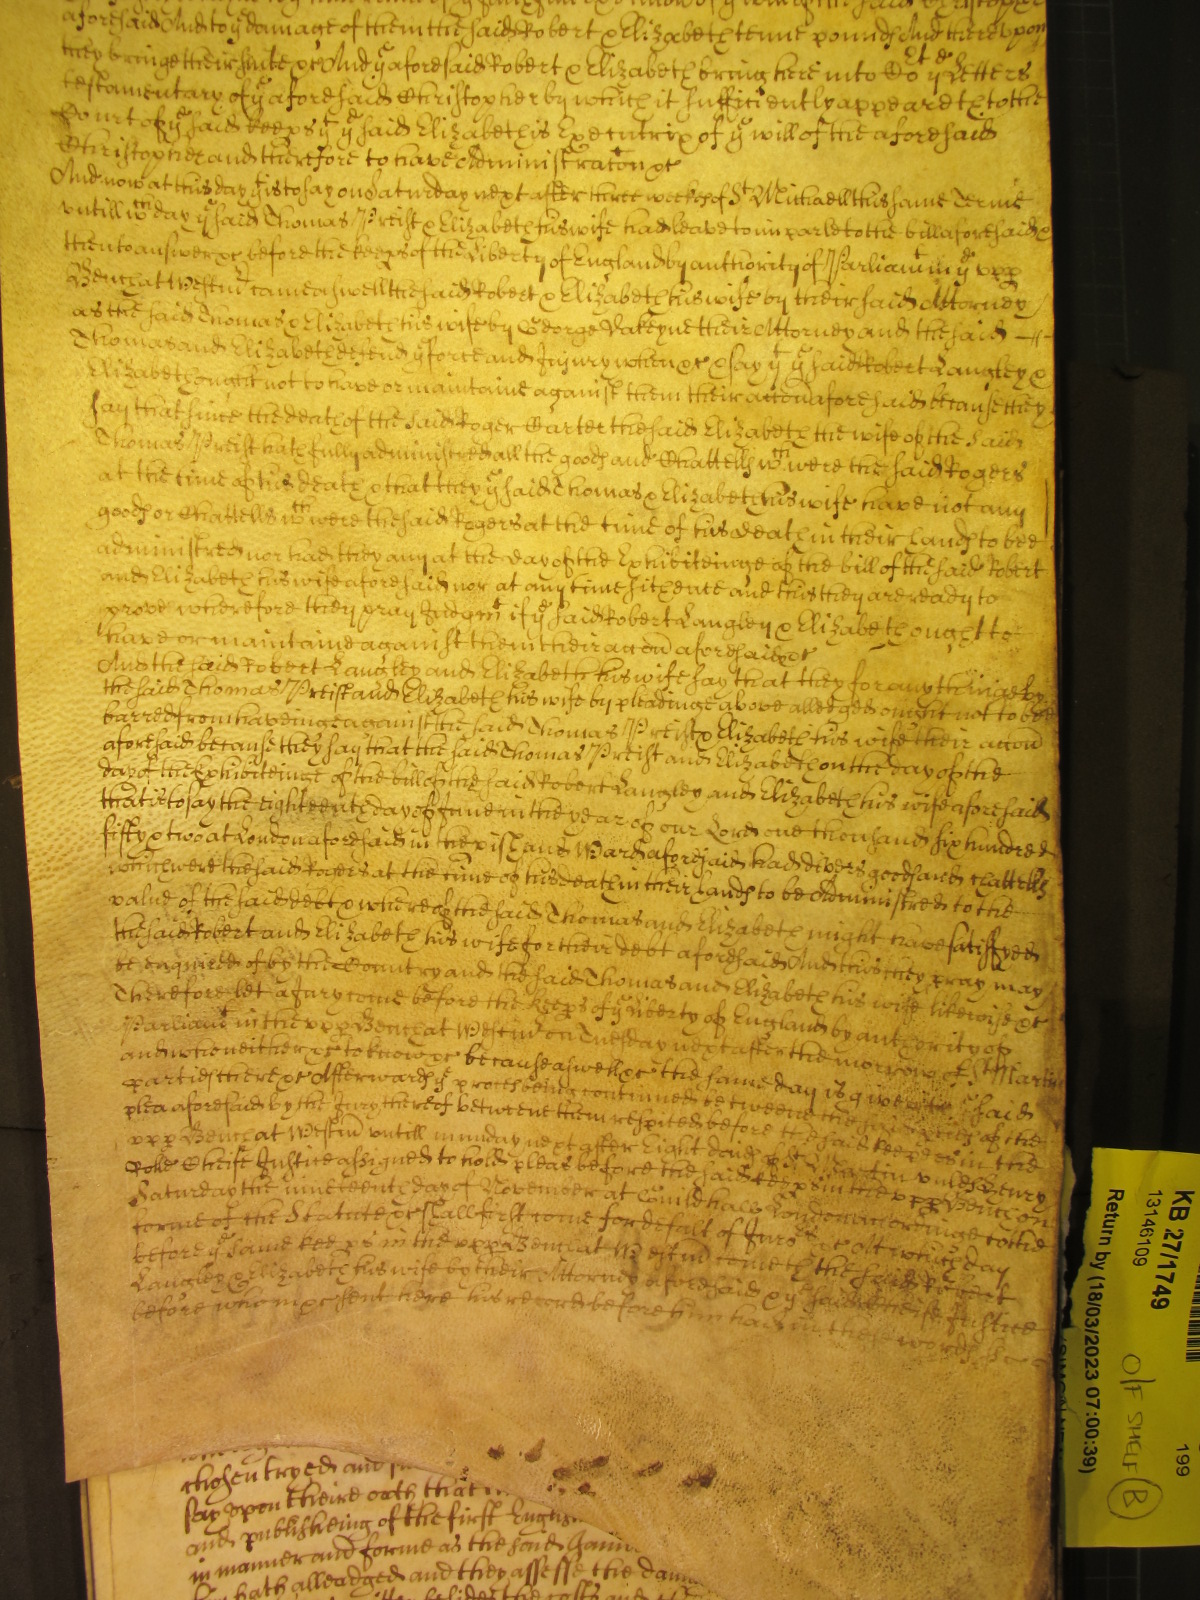 aforesaid And to ye damage of them the said Robert & Elizabeth tenne pounds And thereupon
they bringe their suite &c And ye aforesaid Robert & Elizabeth bring here into Cort ye Letters
testamentary of ye aforesaid Christopher by which it sufficiently appeareth to the
Court of ye said keeps yt ye said Elizabeth is Executrix of ye will of the aforesaid
Christopher and therefore to have Administracon &c
And now at this day yt is to say on Saturday next after three weekes of St Michaell this same Terme
untill wch day ye said Thomas Preist & Elizabeth his wife had leave to imparle to the bill aforesaid &
then to answer &c before the keeps of the Liberty of England by authority of Parliamt in ye upp
Bench at Westmr came aswell the said Robert & Elizabeth his wife by their said Attorney
as the said Thomas & Elizabeth his wife by George Dakeyne their Attorney and the said
Thomas and Elizabeth defend ye force and Injury when &c & say yt ye said Robert Langley &
Elizabeth ought not to have or maintaine against them their accon aforesaid because they
say that since the death of the said Roger Carter the said Elizabeth the wife of the said
Thomas Preist hath fully administred all the goods and Chattells wch were the said Rogers
at the time of his death & that they ye said Thomas & Elizabeth his wife have not any
goods or Chattells wch were the said Rogers at the time of his death in their hands to bee
administred nor had they any at the day of the Exhibiteinge of the bill of the said Robert
and Elizabeth his wife aforesaid nor at any time sithence and this they are ready to
prove wherefore they pray Judgmt if ye said Robert Langley & Elizabeth ought to
have or maintaine against them their accon aforesaid &c
And the said Robert Langley and Elizabeth his wife say that they for any thinge by
the said Thomas Preist and Elizabeth his wife by pleadinge above alledged ought not to bee
barred from haveinge against the said Thomas Preist & Elizabeth his wife their accon
aforesaid because they say that the said Thomas Preist and Elizabeth on the day of the
day of the Exhibiteinge of the bill of the said Robert Langley and Elizabeth his wife aforesaid
that is to say the Eighteenth day of June in the year of our Lord one thousand six hundred
fifty & two at London aforesaid in the pish and Ward aforesaid had divers goods and chattells
which were the said Rogers at the time of his death in their hands to be Administred to the
value of the said debt & whereof the said Thomas and Elizabeth might have satisfyed
the said Robert and Elizabeth his wife for their debt aforesaid And this they pray may
be enquired of by the Country and the said Thomas and Elizabeth his wife likewise &c
Therefore let a Jury come before the keeps of ye Liberty of England by authority of
Parliamt in the upp Bench at Westmr on Tuesday next after the morrow of St Martin
and who neither &c to know &c because aswell &c the same day is given to ye said
parties there &c Afterwards ye proces being continued betweene the said parties of the
plea aforesaid by the Jury thereof betweene them respited before the said keepers in the
upp Bench at Westmr untill munday next after Eight daies of St Martin unles Henry
Rolle Cheife Justice assigned to hold pleas before the said keeps in the upp Bench on
Saturday the nineteenth day of November at Guildhall London accordinge to the
forme of the Statute &c shall first come for default of Juros &c At which day
before ye same keeps in the upp Bench at Westmr cometh the said Robert
Langley & Elizabeth his wife by their Attorney aforesaid & ye said Cheife Justice
before whom &c sent here his record before him had in these words
chosen tryed and
say upon theire oath that
and publishing of the first English
in manner and forme as the said
hath alleadged and they assesse the dama
besides the costs and
KB 27/1749
13146109
199
Return by (18/03/2023 07:00:39)
O/F SHELF
B